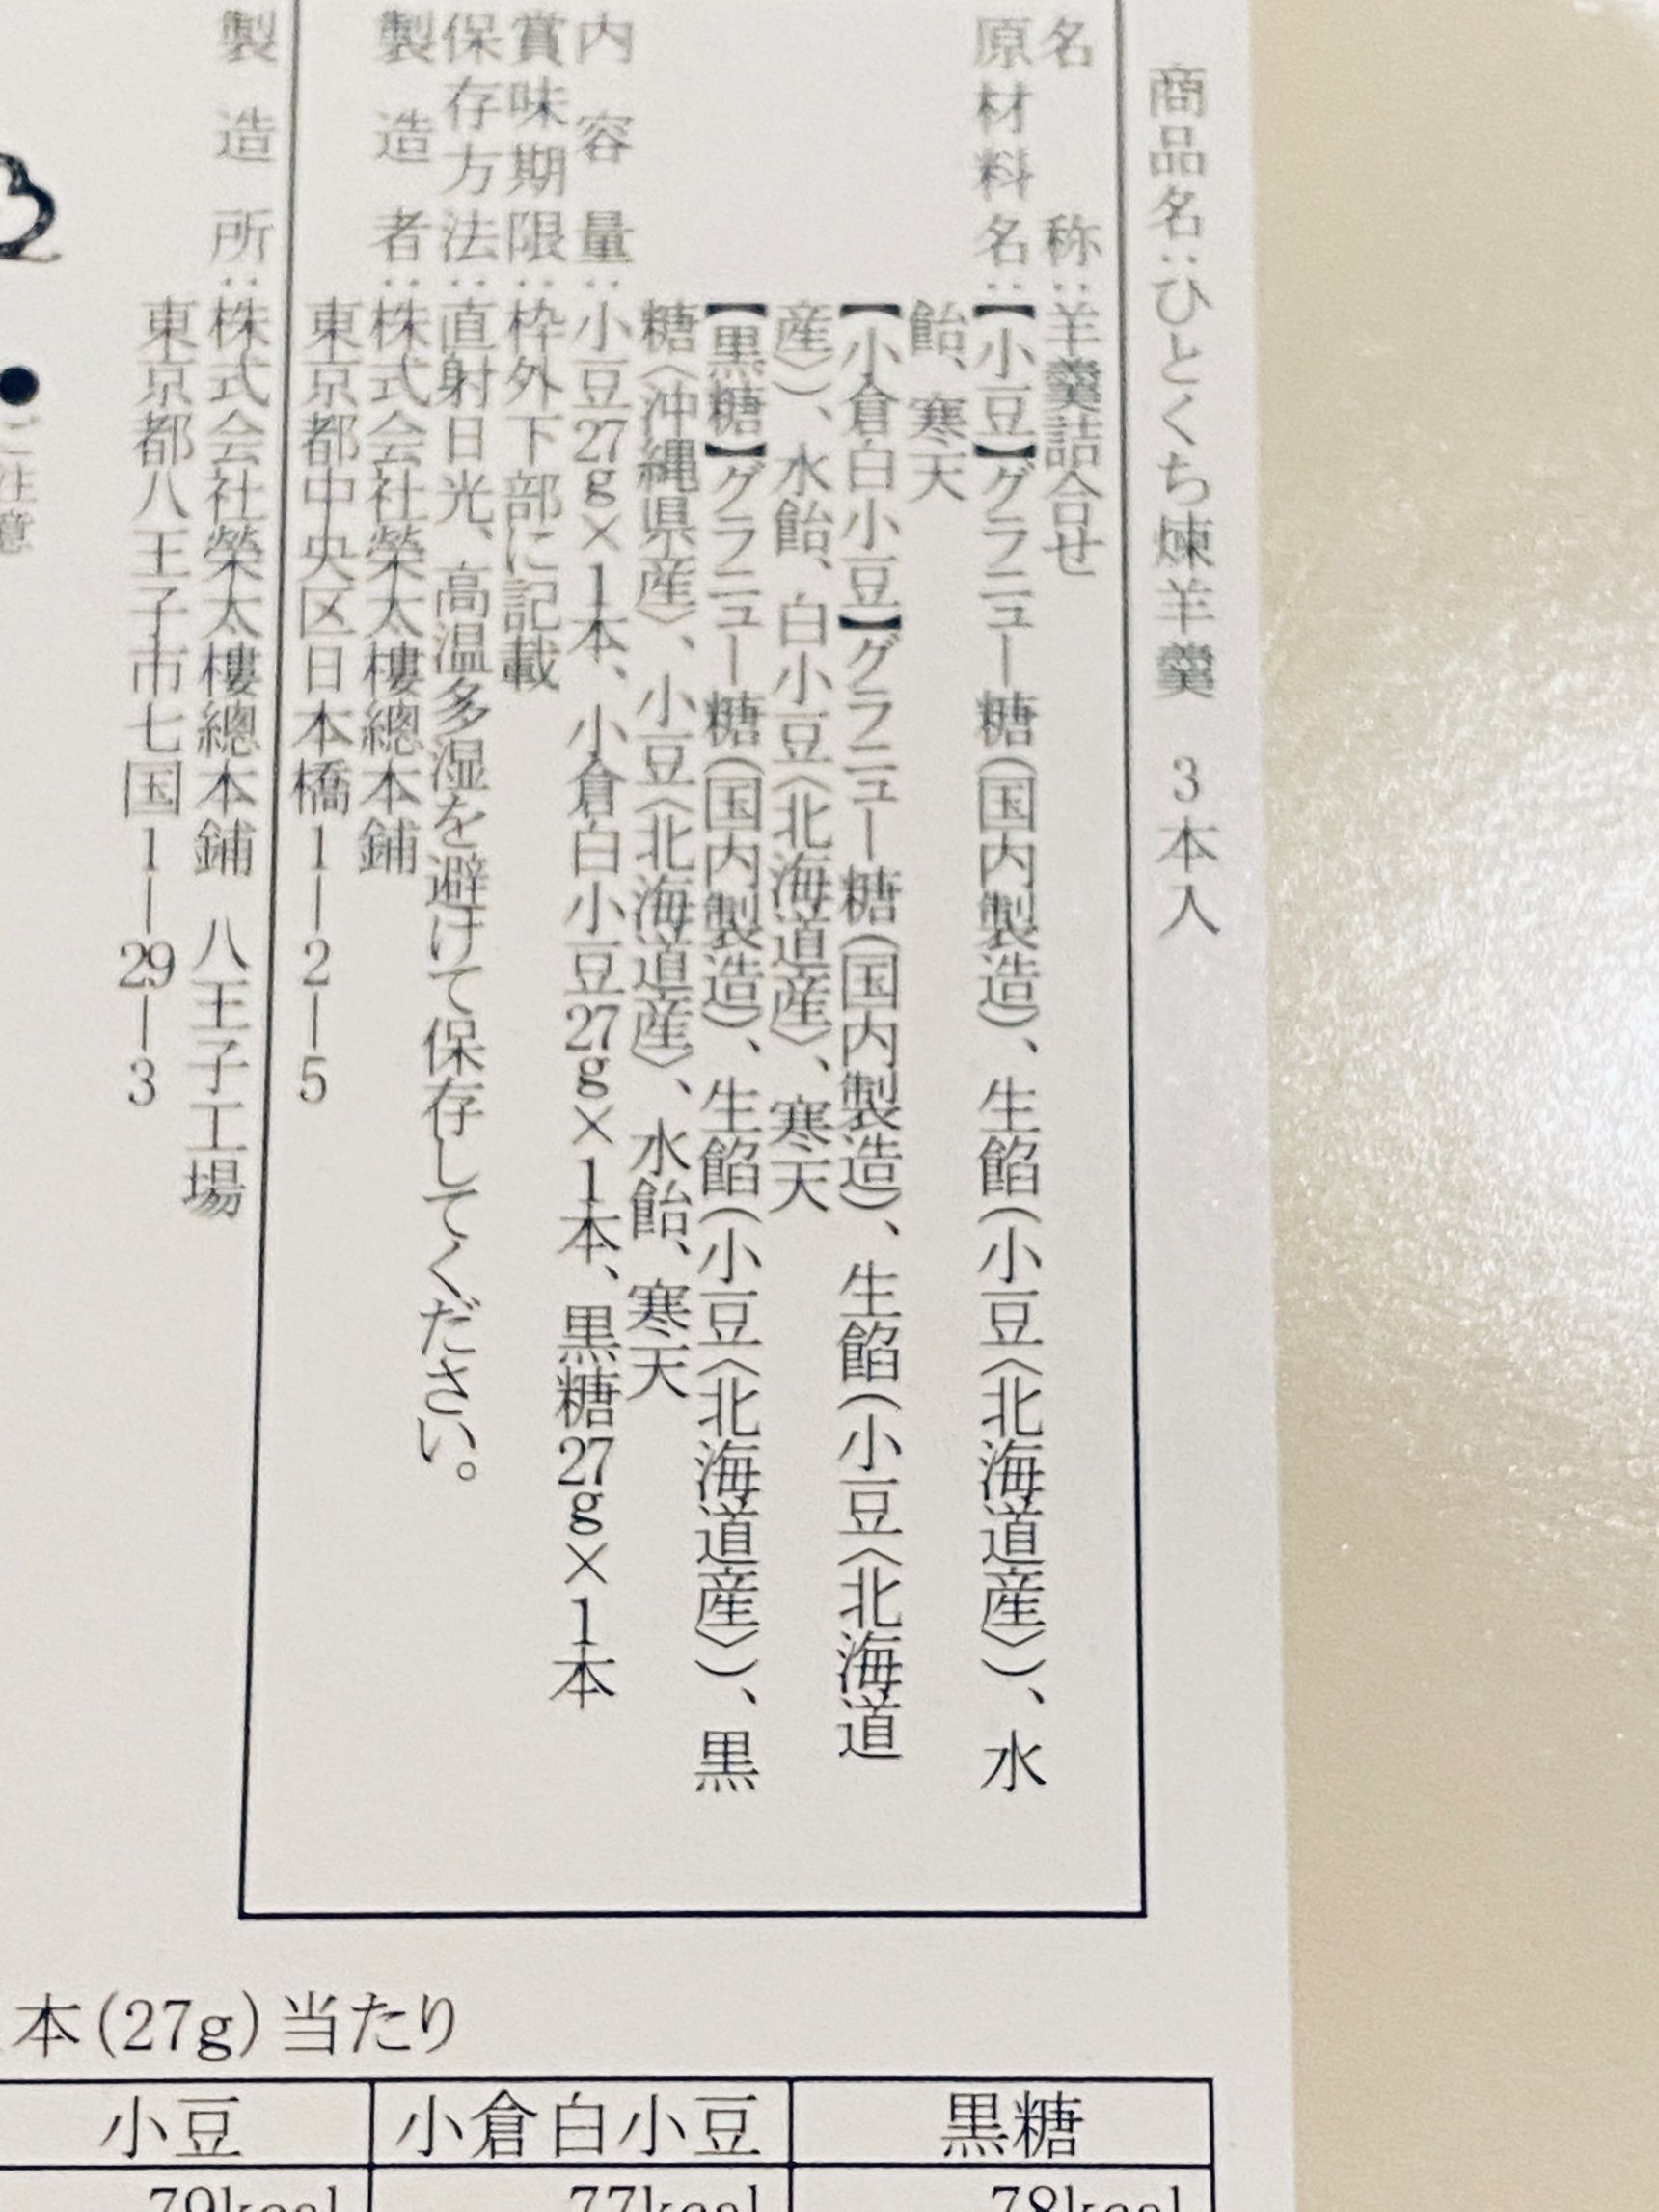 商品名：ひとくち煉羊羹　3本入
名称：羊羹詰合せ
原材料名：【小豆】グラニュー糖（国内製造）、生餡（小豆〈北海道産〉）、水
飴、寒天
【小倉白小豆】グラニュー糖（国内製造）、生餡（小豆〈北海道
産〉）、水飴、白小豆〈北海道産〉、寒天
【黒糖】グラニュー糖（国内製造）、生餡（小豆〈北海道産〉）、黒
糖〈沖縄県産〉、小豆〈北海道産〉、水飴、寒天
内容量：小豆27g×1本、小倉白小豆27g×1本、黒糖27g×1本
賞味期限：枠外下部に記載
保存方法：直射日光、高温多湿を避けて保存してください。
製造者：株式会社榮太樓總本鋪
東京都中央区日本橋1－2－5
製造所：株式会社榮太樓總本鋪　八王子工場
東京都八王子市七国1－29－3
ご注意
本(27g)当たり
小豆　小倉白小豆　黒糖
79kcal　77kcal　78kcal